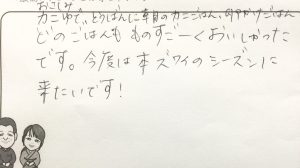 おさしみ
カニゆで、どうばんに 年目のカニごはん、何やかけごはん
どのごはんも ものすごーくおいしかった
です。今度は本ズワイのシーズンに
来たいです!